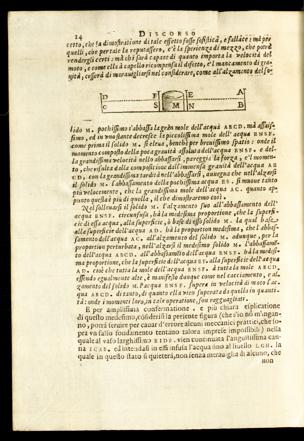 14 DISCORSO
cetto, che la dimostrazione di tale effetto fosse sofistica, e fallace: mà per
quelli, che per tale la reputassero, c'è la sperienza di mezzo, che potrà
rendergli certi: mà chi sarà capace di quanto importa la velocità del
moto, e come ella à capello ricompensa il difetto, e'l mancamento di gra-
vità, cesserà di maravigliarsi nel considerare, come all'alzamento del so-
D F E A
C S M N B
lido M. pochissimo s'abbassa la gran mole dell'acqua ABCD. mà assais-
simo, ed in vn'instante decresce la piccolissima mole dell'acqua ENSF.
come prima il solido M. si eleua, benchè per breuissimo spatio: onde il
momento composto della poca grauità assoluta dell'acqua ENSF. e del-
la grandissima velocità nello abbassarsi, pareggia la forza, e'l momen-
to, che risulta dalla composizione dell'immensa grauità dell'acqua AB
CD. con la grandissima tardità nell'abbassarsi, auuegna che nell'alzarsi
il solido M. l'abbassamento della pochissima acqua ES. si muoue tanto
più velocemente, che la grandissima mole dell'acqua AC. quanto ap-
punto questa è più di quella, il che dimostreremo così.
Nel solleuarsi il solido M. l'alzamento suo all'abbassamento dell'
acqua ENSF. circunfusa, hà la medesima proporzione, che la superfi-
cie di essa acqua, alla superficie, ò base di esso solido M. la qual base
alla superficie dell'acqua AD. hà la proporzion medesima, che l'abbas-
samento dell'acqua AC. all'alzamento del solido M. adunque, per la
proportion perturbata, nell'alzarsi il medesimo solido M. l'abbassamen-
to dell'acqua ABCD. all'abbassamento dell'acqua ENSF. hà la medesi-
ma proporzione, che la superficie dell'acqua EF. alla superficie dell'acqua
AD. cioè che tutta la mole dell'acqua ENSF. à tutta la mole ABCD.
essendo egualmente alte, è manifesto dunque come nel cacciamento, e al-
zamento del solido M. l'acqua ENSF. supera in velocità di moto l'ac-
qua ABCD. di tanto, di quanto ella vien superata da quella in quanti-
tà: onde i momenti loro, in tale operazione, son ragguagliati.
E per amplissima confermazione, e più chiara esplicazione
di questo medesimo, considerisi la presente figura (che s'io nō m'ingan-
no, potrà seruire per cauar d'errore alcuni meccanici prattici, che so-
pra vn falso fondamento tentano talora imprese impossibili) nella
quale al vaso larghissimo EIDF. vien continuata l'angustissima can-
na ICAB. ed intendasi in essi infusa l'acqua sino al liuello LGH. la
quale in questo stato si quieterà, non senza marauiglia di alcuno, che
non